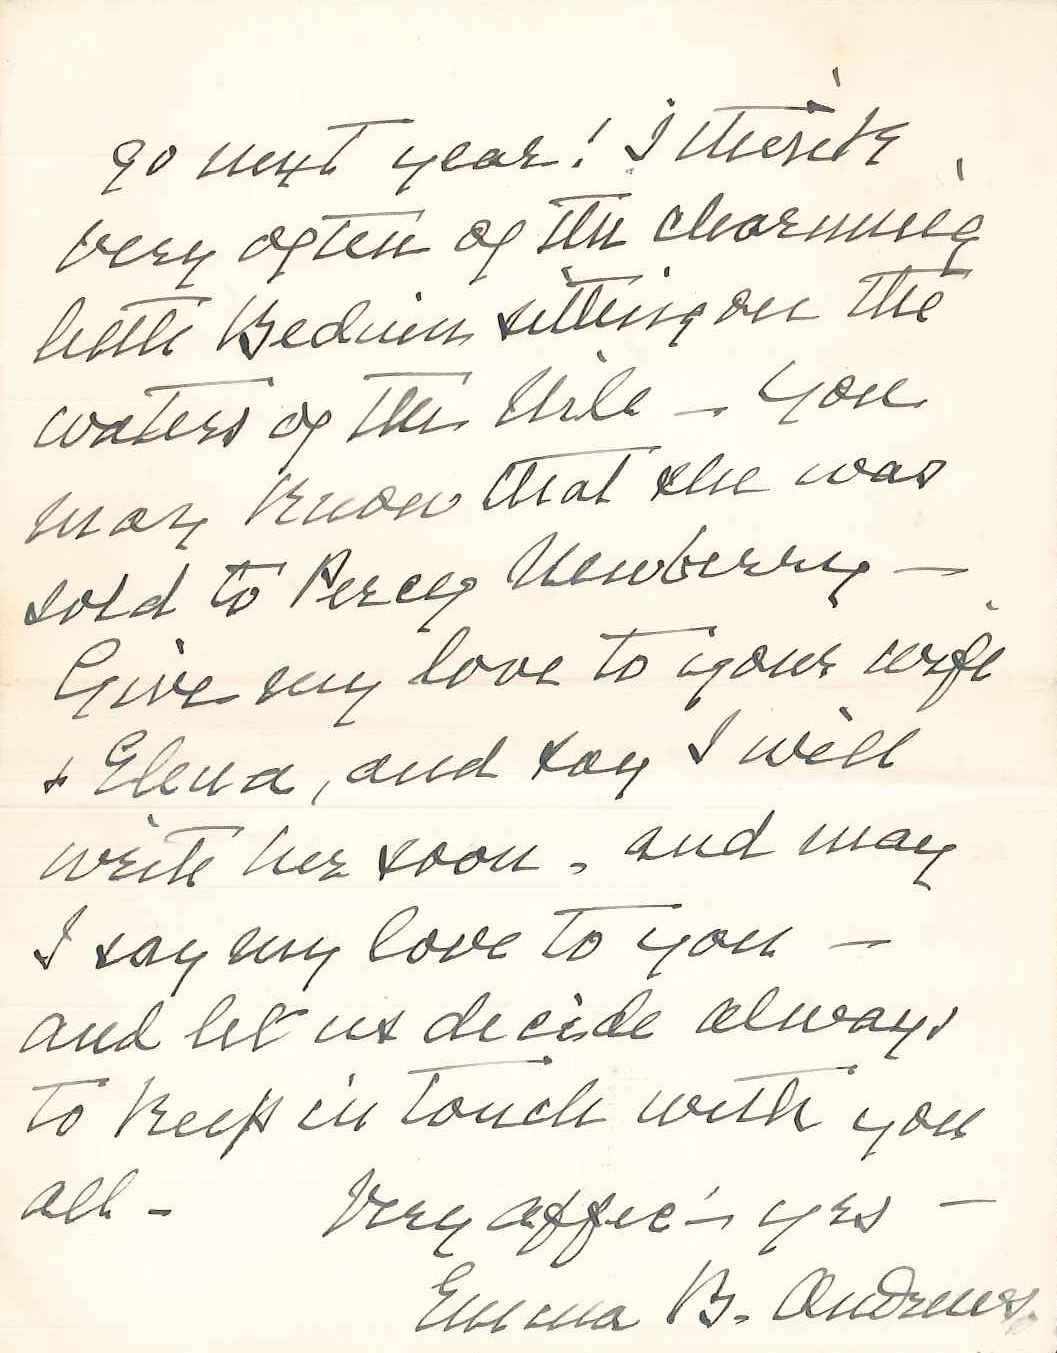 go next year! I think
very often of the charming
little Beduin sitting on the
waters of the Nile — you
may know that she was
sold to Percy Newberry —
Give my love to your wife
+ Elena, and say I will
write her soon. and may
I say my love to you —
and let us decide always
to keep in touch with you
all —  Very affec'—, yrs —
Emma B. Andrews.